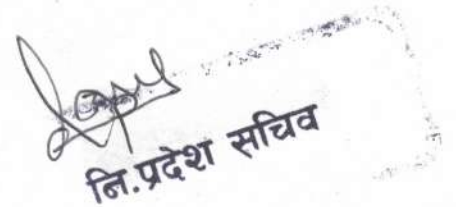 नि.प्रदेश सचिव